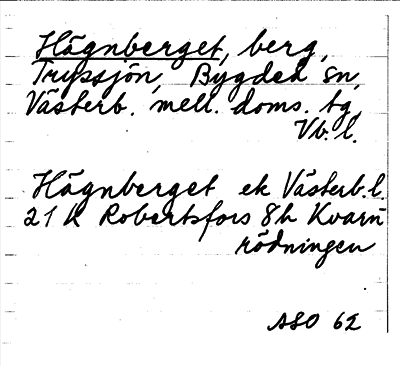 Hägnberget, berg,
Tryssjön, Bygdeå sn,
Västerb. mell. doms. tg,
Vb.l.
Hägnberget ek Västerb.l.
21 K Robertsfors 8h Kvarn
rödningen
ASO 62